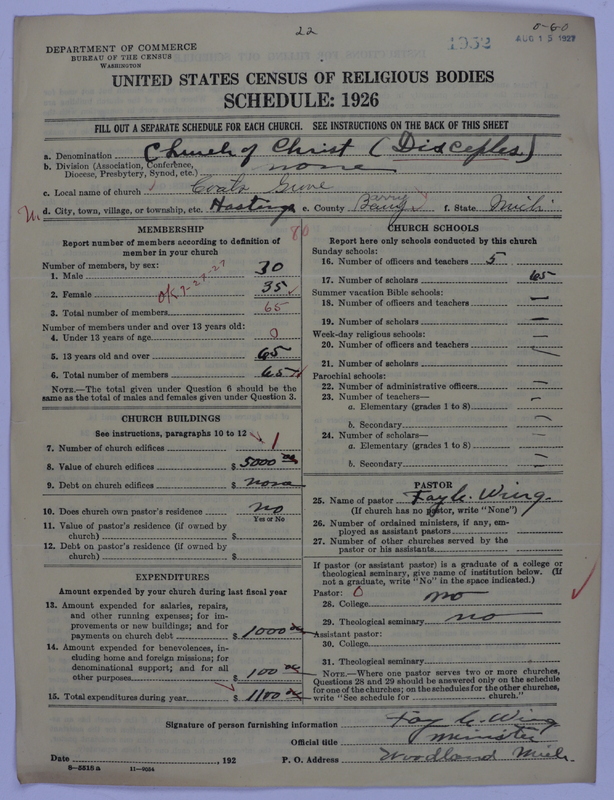 22
0-60
DEPARTMENT OF COMMERCE
BUREAU OF THE CENSUS
WASHINGTON
1932
AUG 15 1927
UNITED STATES CENSUS OF RELIGIOUS BODIES
SCHEDULE: 1926
FILL OUT A SEPARATE SCHEDULE FOR EACH CHURCH. SEE INSTRUCTIONS ON THE BACK OF THIS SHEET
a. Denomination Church of Christ (Disciples)
b. Division (Association, Conference, Diocese, Presbytery, Synod, etc.) none
c. Local name of church Coats Grove
d. City, town, village, or township, etc. Hastings e. County Barry f. State Mich
MEMBERSHIP
80
Report number of members according to definition of member in your church
Number of members, by sex:
1. Male 30
2. Female 35
OK 7-27-27
3. Total number of members 65
Number of members under and over 13 years old:
4. Under 13 years of age 0
5. 13 years old and over 65
6. Total number of members 65
NOTE.—The total given under Question 6 should be the same as the total of males and females given under Question 3.
CHURCH BUILDINGS
See instructions, paragraphs 10 to 12
7. Number of church edifices 1
8. Value of church edifices $ 5000 00
9. Debt on church edifices $ none
10. Does church own pastor's residence no
Yes or No
11. Value of pastor's residence (if owned by church) $
12. Debt on pastor's residence (if owned by church) $
EXPENDITURES
Amount expended by your church during last fiscal year
13. Amount expended for salaries, repairs, and other running expenses; for improvements or new buildings; and for payments on church debt $ 1000 00
14. Amount expended for benevolences, including home and foreign missions; for denominational support; and for all other purposes $ 100 00
15. Total expenditures during year $ 1100 00
CHURCH SCHOOLS
Report here only schools conducted by this church
Sunday schools:
16. Number of officers and teachers 5
17. Number of scholars 65
Summer vacation Bible schools:
18. Number of officers and teachers —
19. Number of scholars —
Week-day religious schools:
20. Number of officers and teachers —
21. Number of scholars
Parochial schools:
22. Number of administrative officers —
23. Number of teachers—
a. Elementary (grades 1 to 8) —
b. Secondary —
24. Number of scholars—
a. Elementary (grades 1 to 8) —
b. Secondary —
PASTOR
25. Name of pastor Fay C. Wing
(If church has no pastor, write "None")
26. Number of ordained ministers, if any, employed as assistant pastors
27. Number of other churches served by the pastor or his assistants
If pastor (or assistant pastor) is a graduate of a college or theological seminary, give name of institution below. (If not a graduate, write "No" in the space indicated.)
Pastor: 0
28. College no
29. Theological seminary no
Assistant pastor:
30. College
31. Theological seminary
NOTE.—Where one pastor serves two or more churches, Questions 28 and 29 should be answered only on the schedule for one of the churches; on the schedules for the other churches, write "See schedule for church."
Signature of person furnishing information Fay C. Wing
Official title Minister
Date , 192 P. O. Address Woodland Mich.
8-5515 a 11-9054